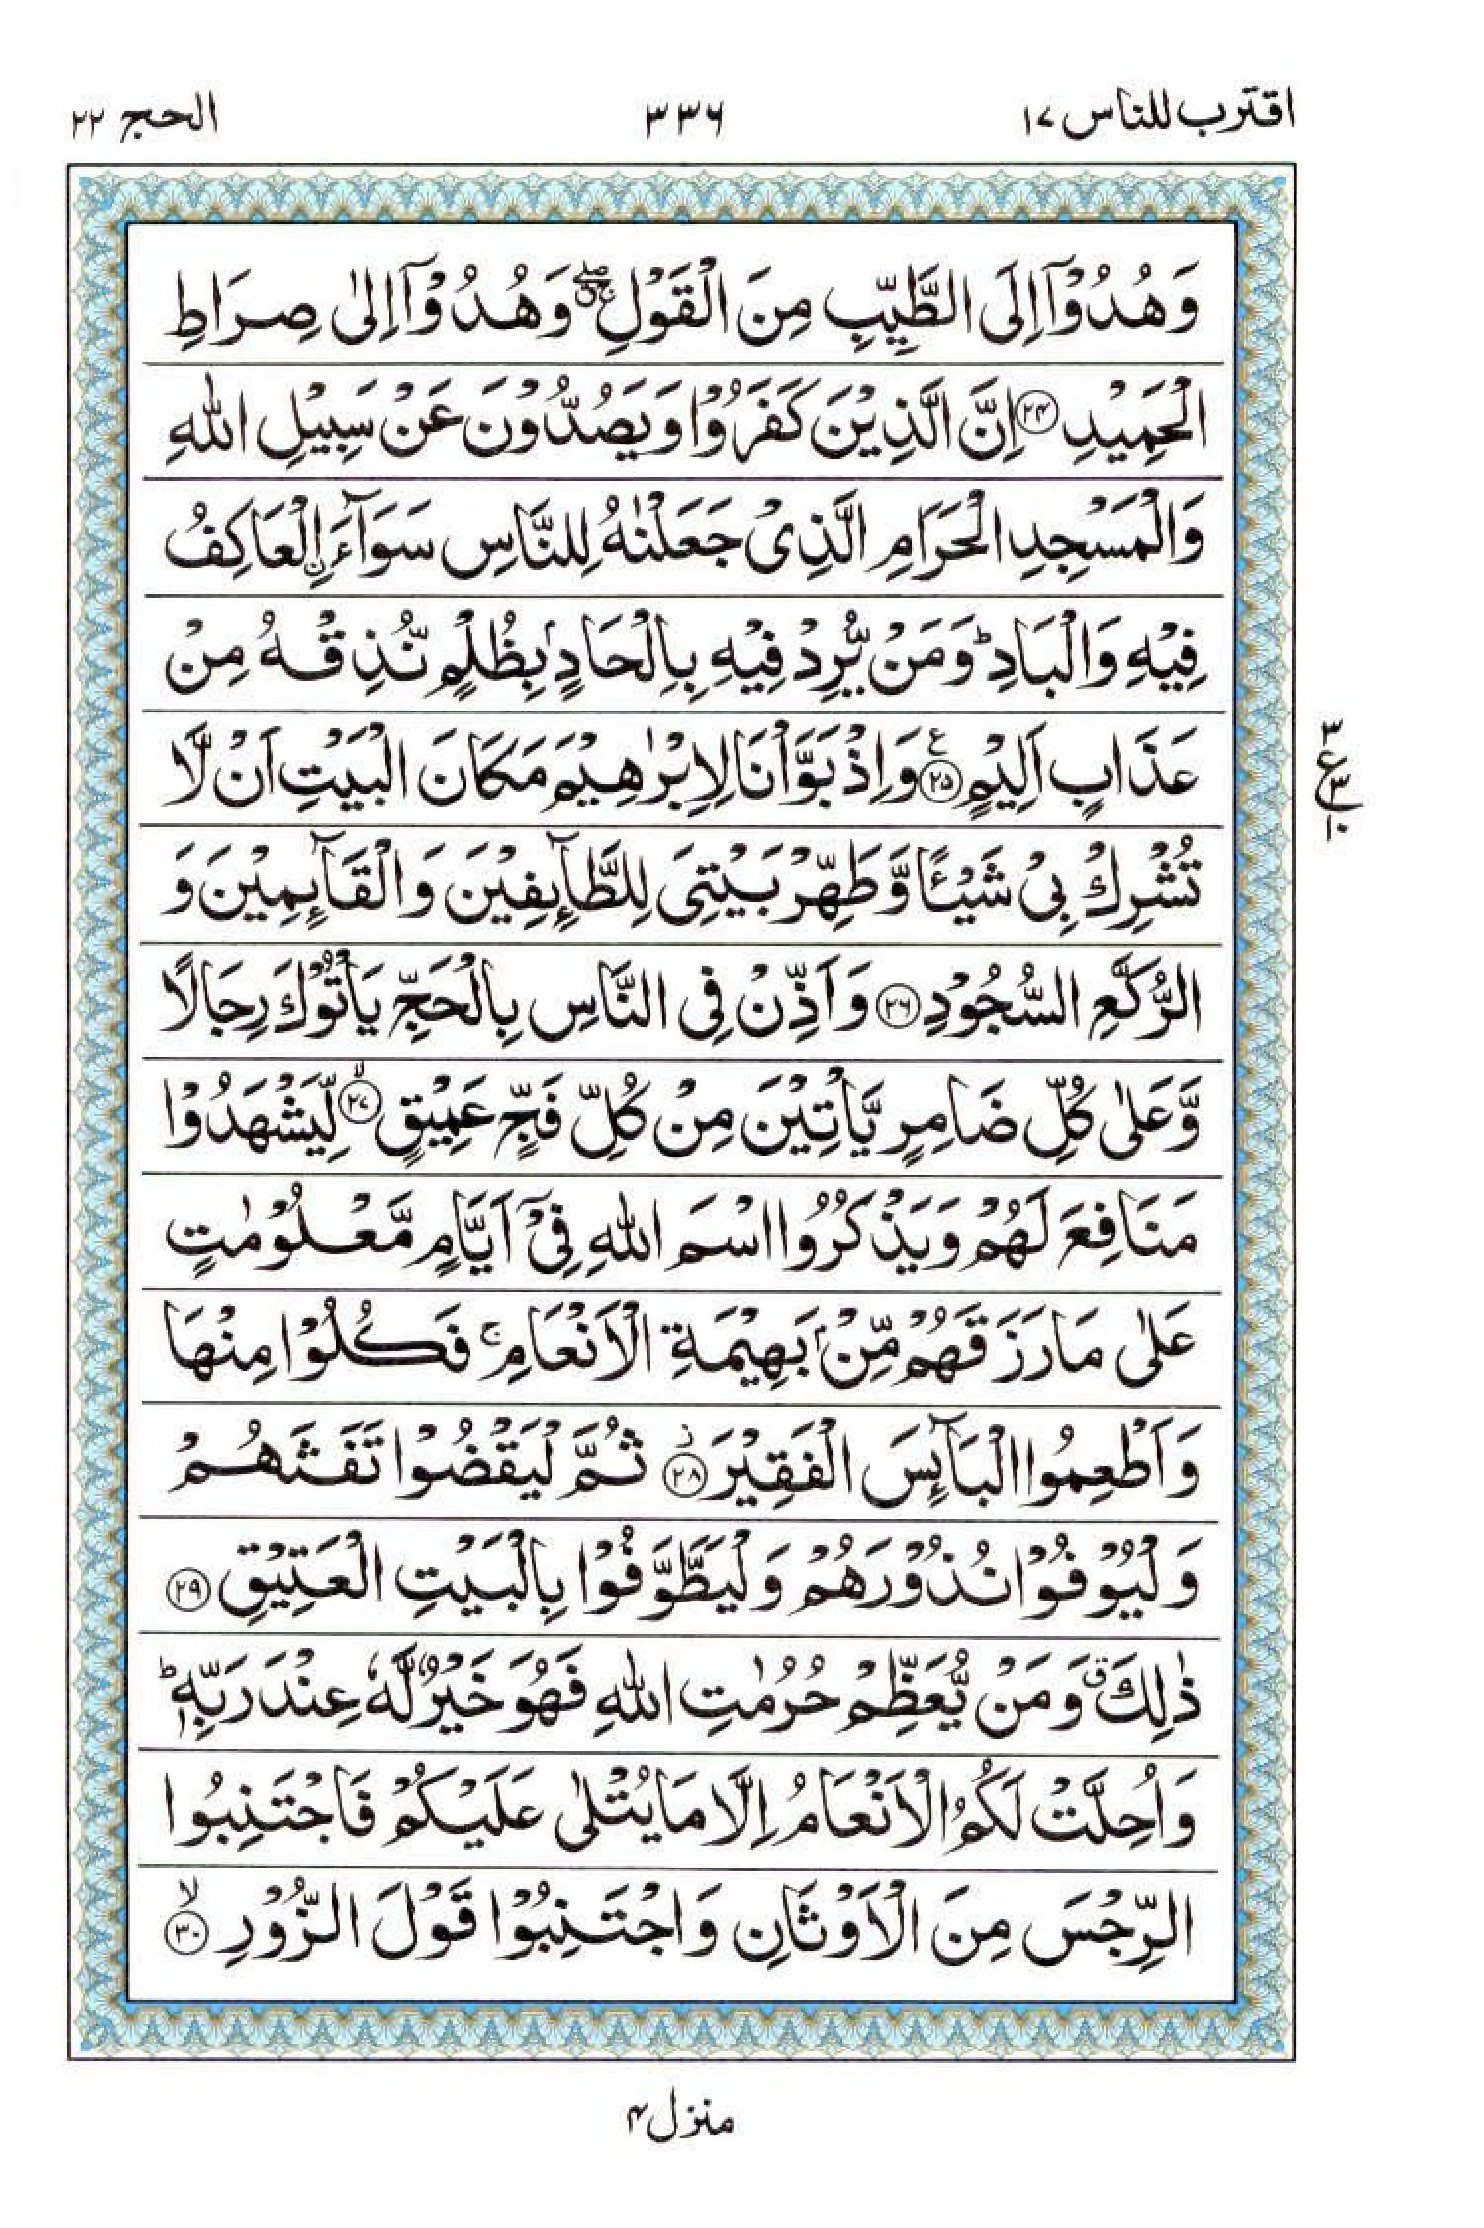 اقترب للناس ١٧ ٣٣٦ الحج ٢٢
وَهُدُوْۤا اِلَى الطَّيِّبِ مِنَ الْقَوْلِ ۖۚ وَهُدُوْۤا اِلٰى صِرَاطِ
الْحَمِيْدِ ﴿٢٤﴾ اِنَّ الَّذِيْنَ كَفَرُوْا وَيَصُدُّوْنَ عَنْ سَبِيْلِ اللّٰهِ
وَالْمَسْجِدِ الْحَرَامِ الَّذِىْ جَعَلْنٰهُ لِلنَّاسِ سَوَآءَ ۨالْعَاكِفُ
فِيْهِ وَالْبَادِ ؕ وَمَنْ يُّرِدْ فِيْهِ بِاِلْحَادٍۭ بِظُلْمٍ نُّذِقْهُ مِنْ
عَذَابٍ اَلِيْمٍ ﴿٢٥﴾ ع وَاِذْ بَوَّاْنَا لِاِبْرٰهِيْمَ مَكَانَ الْبَيْتِ اَنْ لَّا
٣ ع ٣ ١٠
تُشْرِكْ بِىْ شَيْـًٔا وَّطَهِّرْ بَيْتِىَ لِلطَّآئِفِيْنَ وَالْقَآئِمِيْنَ وَ
الرُّكَّعِ السُّجُوْدِ ﴿٢٦﴾ وَاَذِّنْ فِى النَّاسِ بِالْحَجِّ يَاْتُوْكَ رِجَالًا
وَّعَلٰى كُلِّ ضَامِرٍ يَّاْتِيْنَ مِنْ كُلِّ فَجٍّ عَمِيْقٍ ﴿٢٧﴾ۙ لِّيَشْهَدُوْا
مَنَافِعَ لَهُمْ وَيَذْكُرُوا اسْمَ اللّٰهِ فِىْۤ اَيَّامٍ مَّعْلُوْمٰتٍ
عَلٰى مَا رَزَقَهُمْ مِّنْۢ بَهِيْمَةِ الْاَنْعَامِ ۚ فَكُلُوْا مِنْهَا
وَاَطْعِمُوا الْبَآئِسَ الْفَقِيْرَ ﴿٢٨﴾ز ثُمَّ لْيَقْضُوْا تَفَثَهُمْ
وَلْيُوْفُوْا نُذُوْرَهُمْ وَلْيَطَّوَّفُوْا بِالْبَيْتِ الْعَتِيْقِ ﴿٢٩﴾
ذٰلِكَ ق وَمَنْ يُّعَظِّمْ حُرُمٰتِ اللّٰهِ فَهُوَ خَيْرٌ لَّهٗ عِنْدَ رَبِّهٖ ؕ
وَاُحِلَّتْ لَكُمُ الْاَنْعَامُ اِلَّا مَا يُتْلٰى عَلَيْكُمْ فَاجْتَنِبُوا
الرِّجْسَ مِنَ الْاَوْثَانِ وَاجْتَنِبُوْا قَوْلَ الزُّوْرِ ﴿٣٠﴾ۙ
منزل ٤